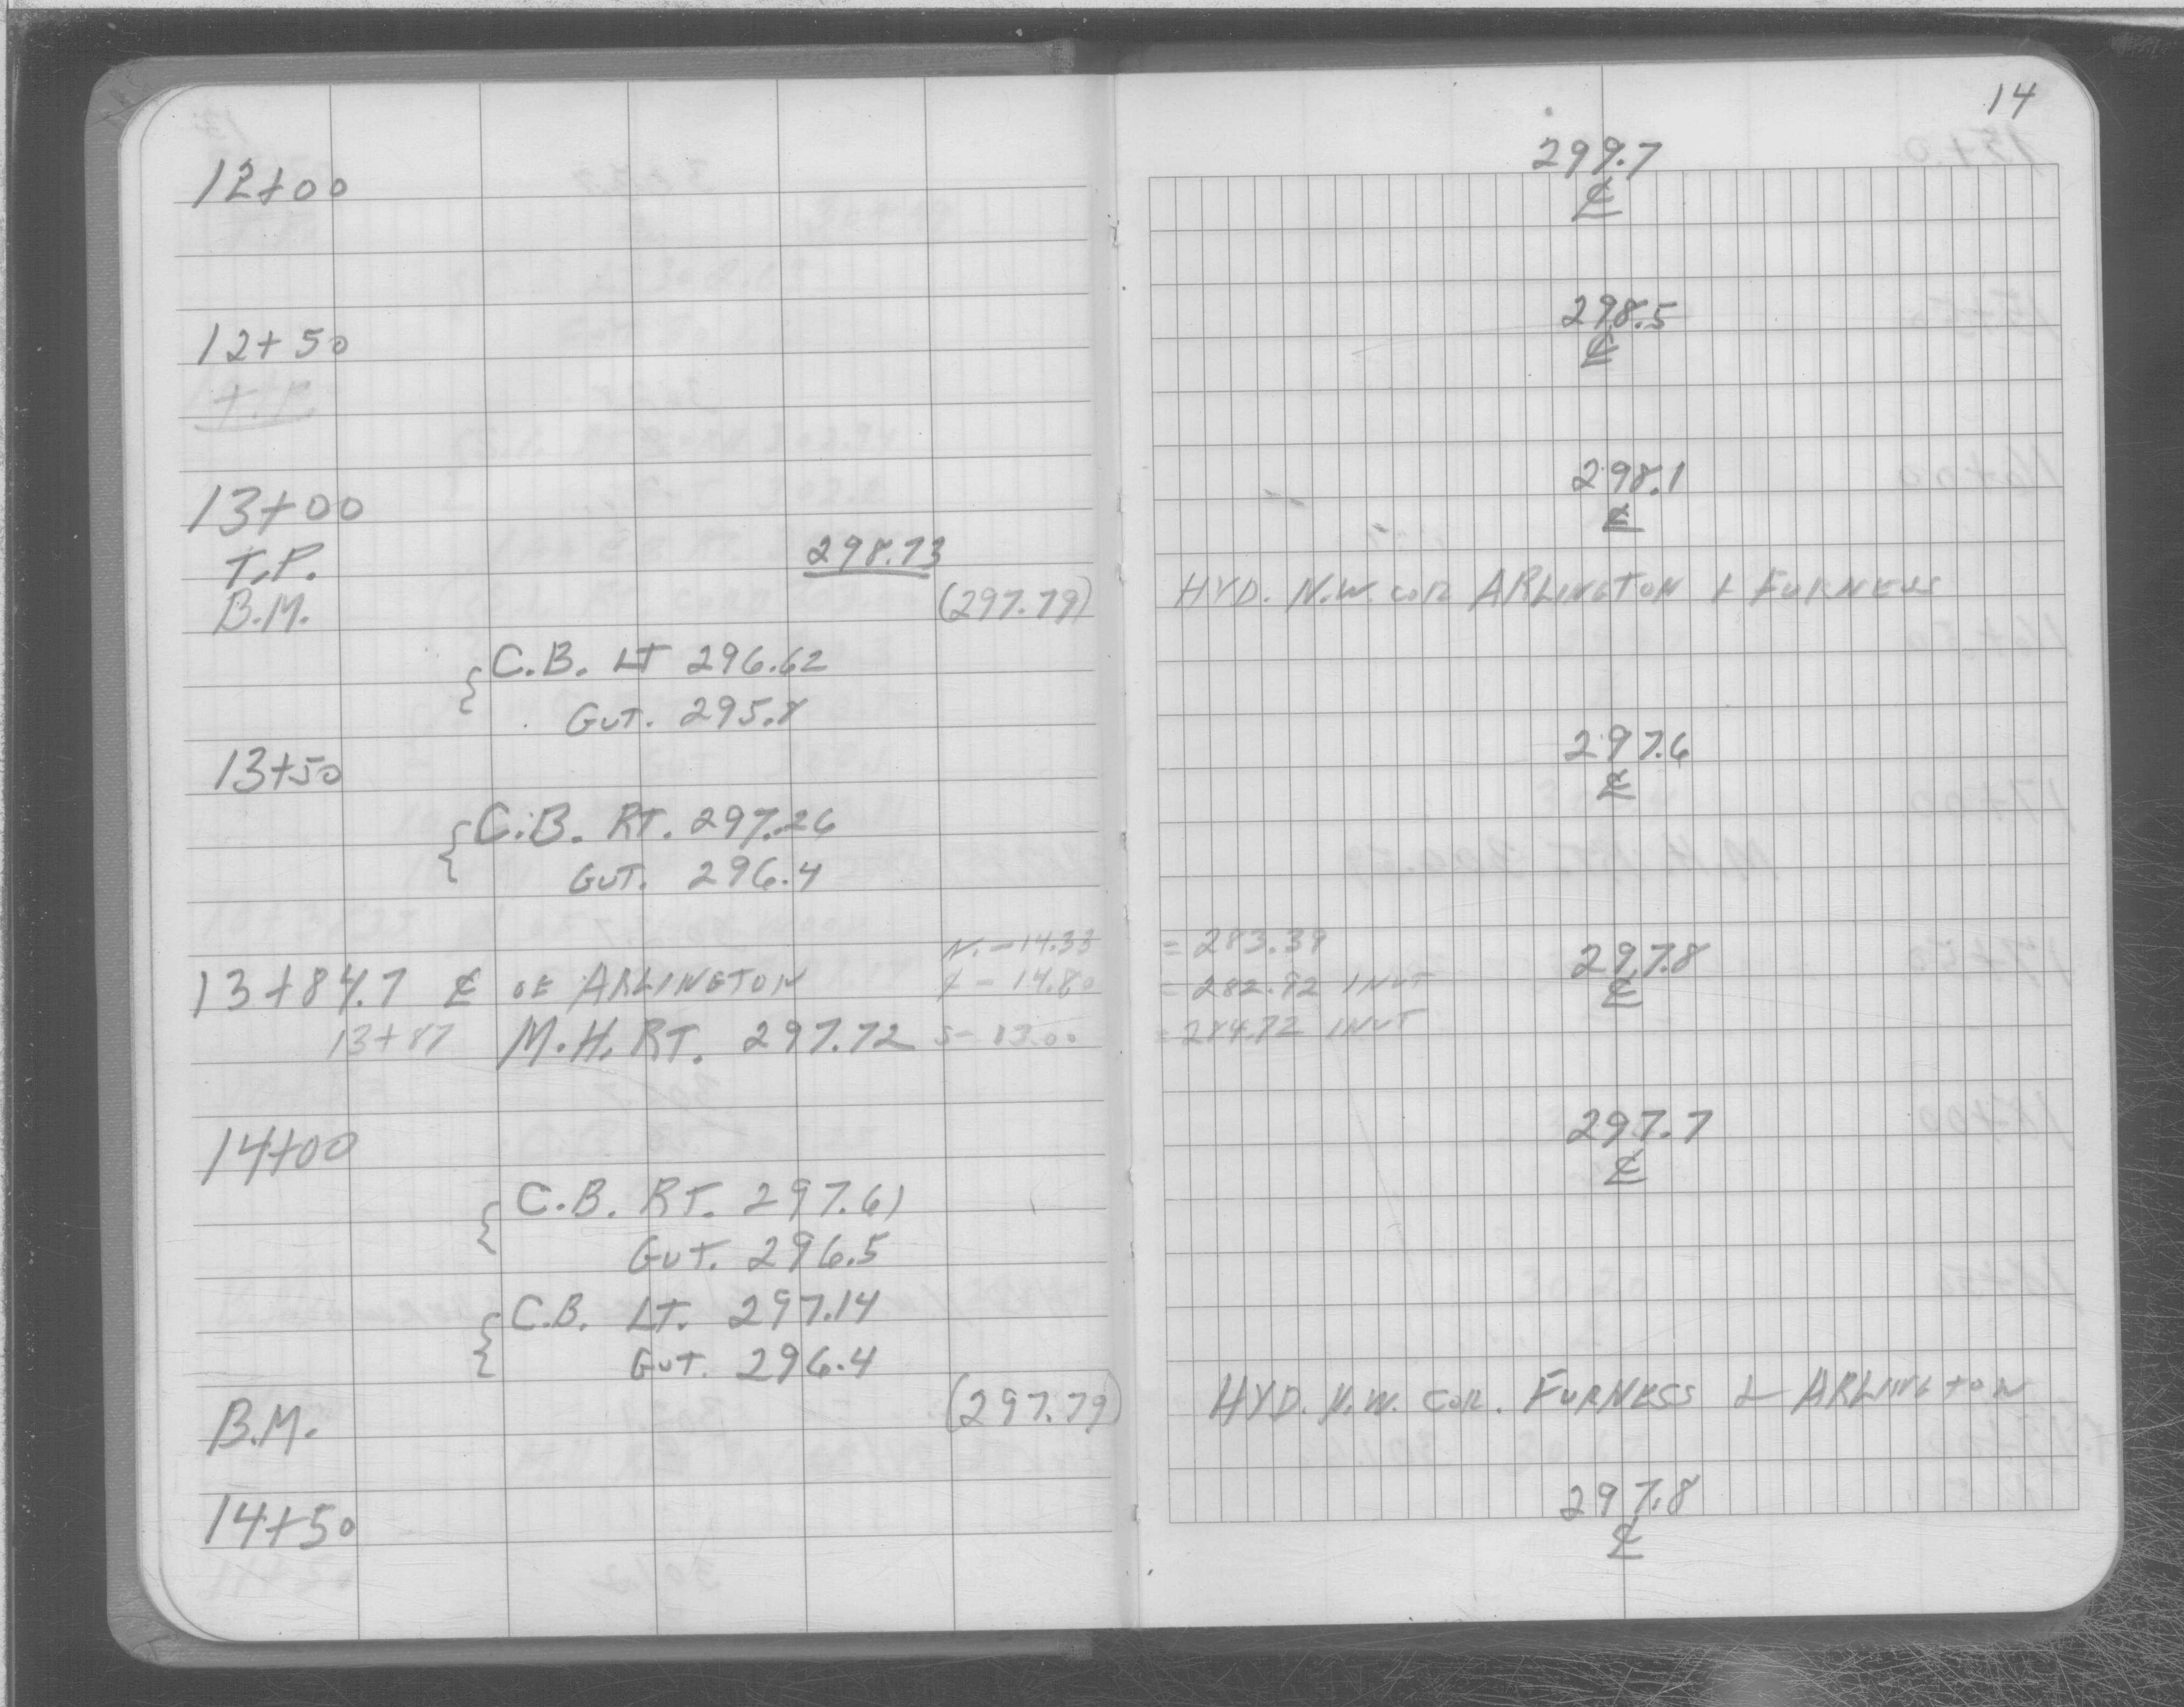 14
12+00 299.7
℄
12+50 298.5
℄
T.P.
13+00 298.1
℄
T.P. 298.73
B.M. (297.79) HYD. N.W. COR ARLINGTON & FURNESS
C.B. LT 296.62
GUT. 295.8
13+50 297.6
℄
C.B. RT. 297.26
GUT. 296.4
N. - 14.33 = 283.39
13+84.7 ℄ OF ARLINGTON - 14.80 = 282.92 INVT 297.8
℄
13+87 M.H. RT. 297.72 S - 13.00 = 284.72 INVT
14+00 297.7
℄
C.B. RT. 297.61
GUT. 296.5
C.B. LT. 297.14
GUT. 296.4
B.M. (297.79) HYD. N.W. COR. FURNESS & ARLINGTON
14+50 297.8
℄